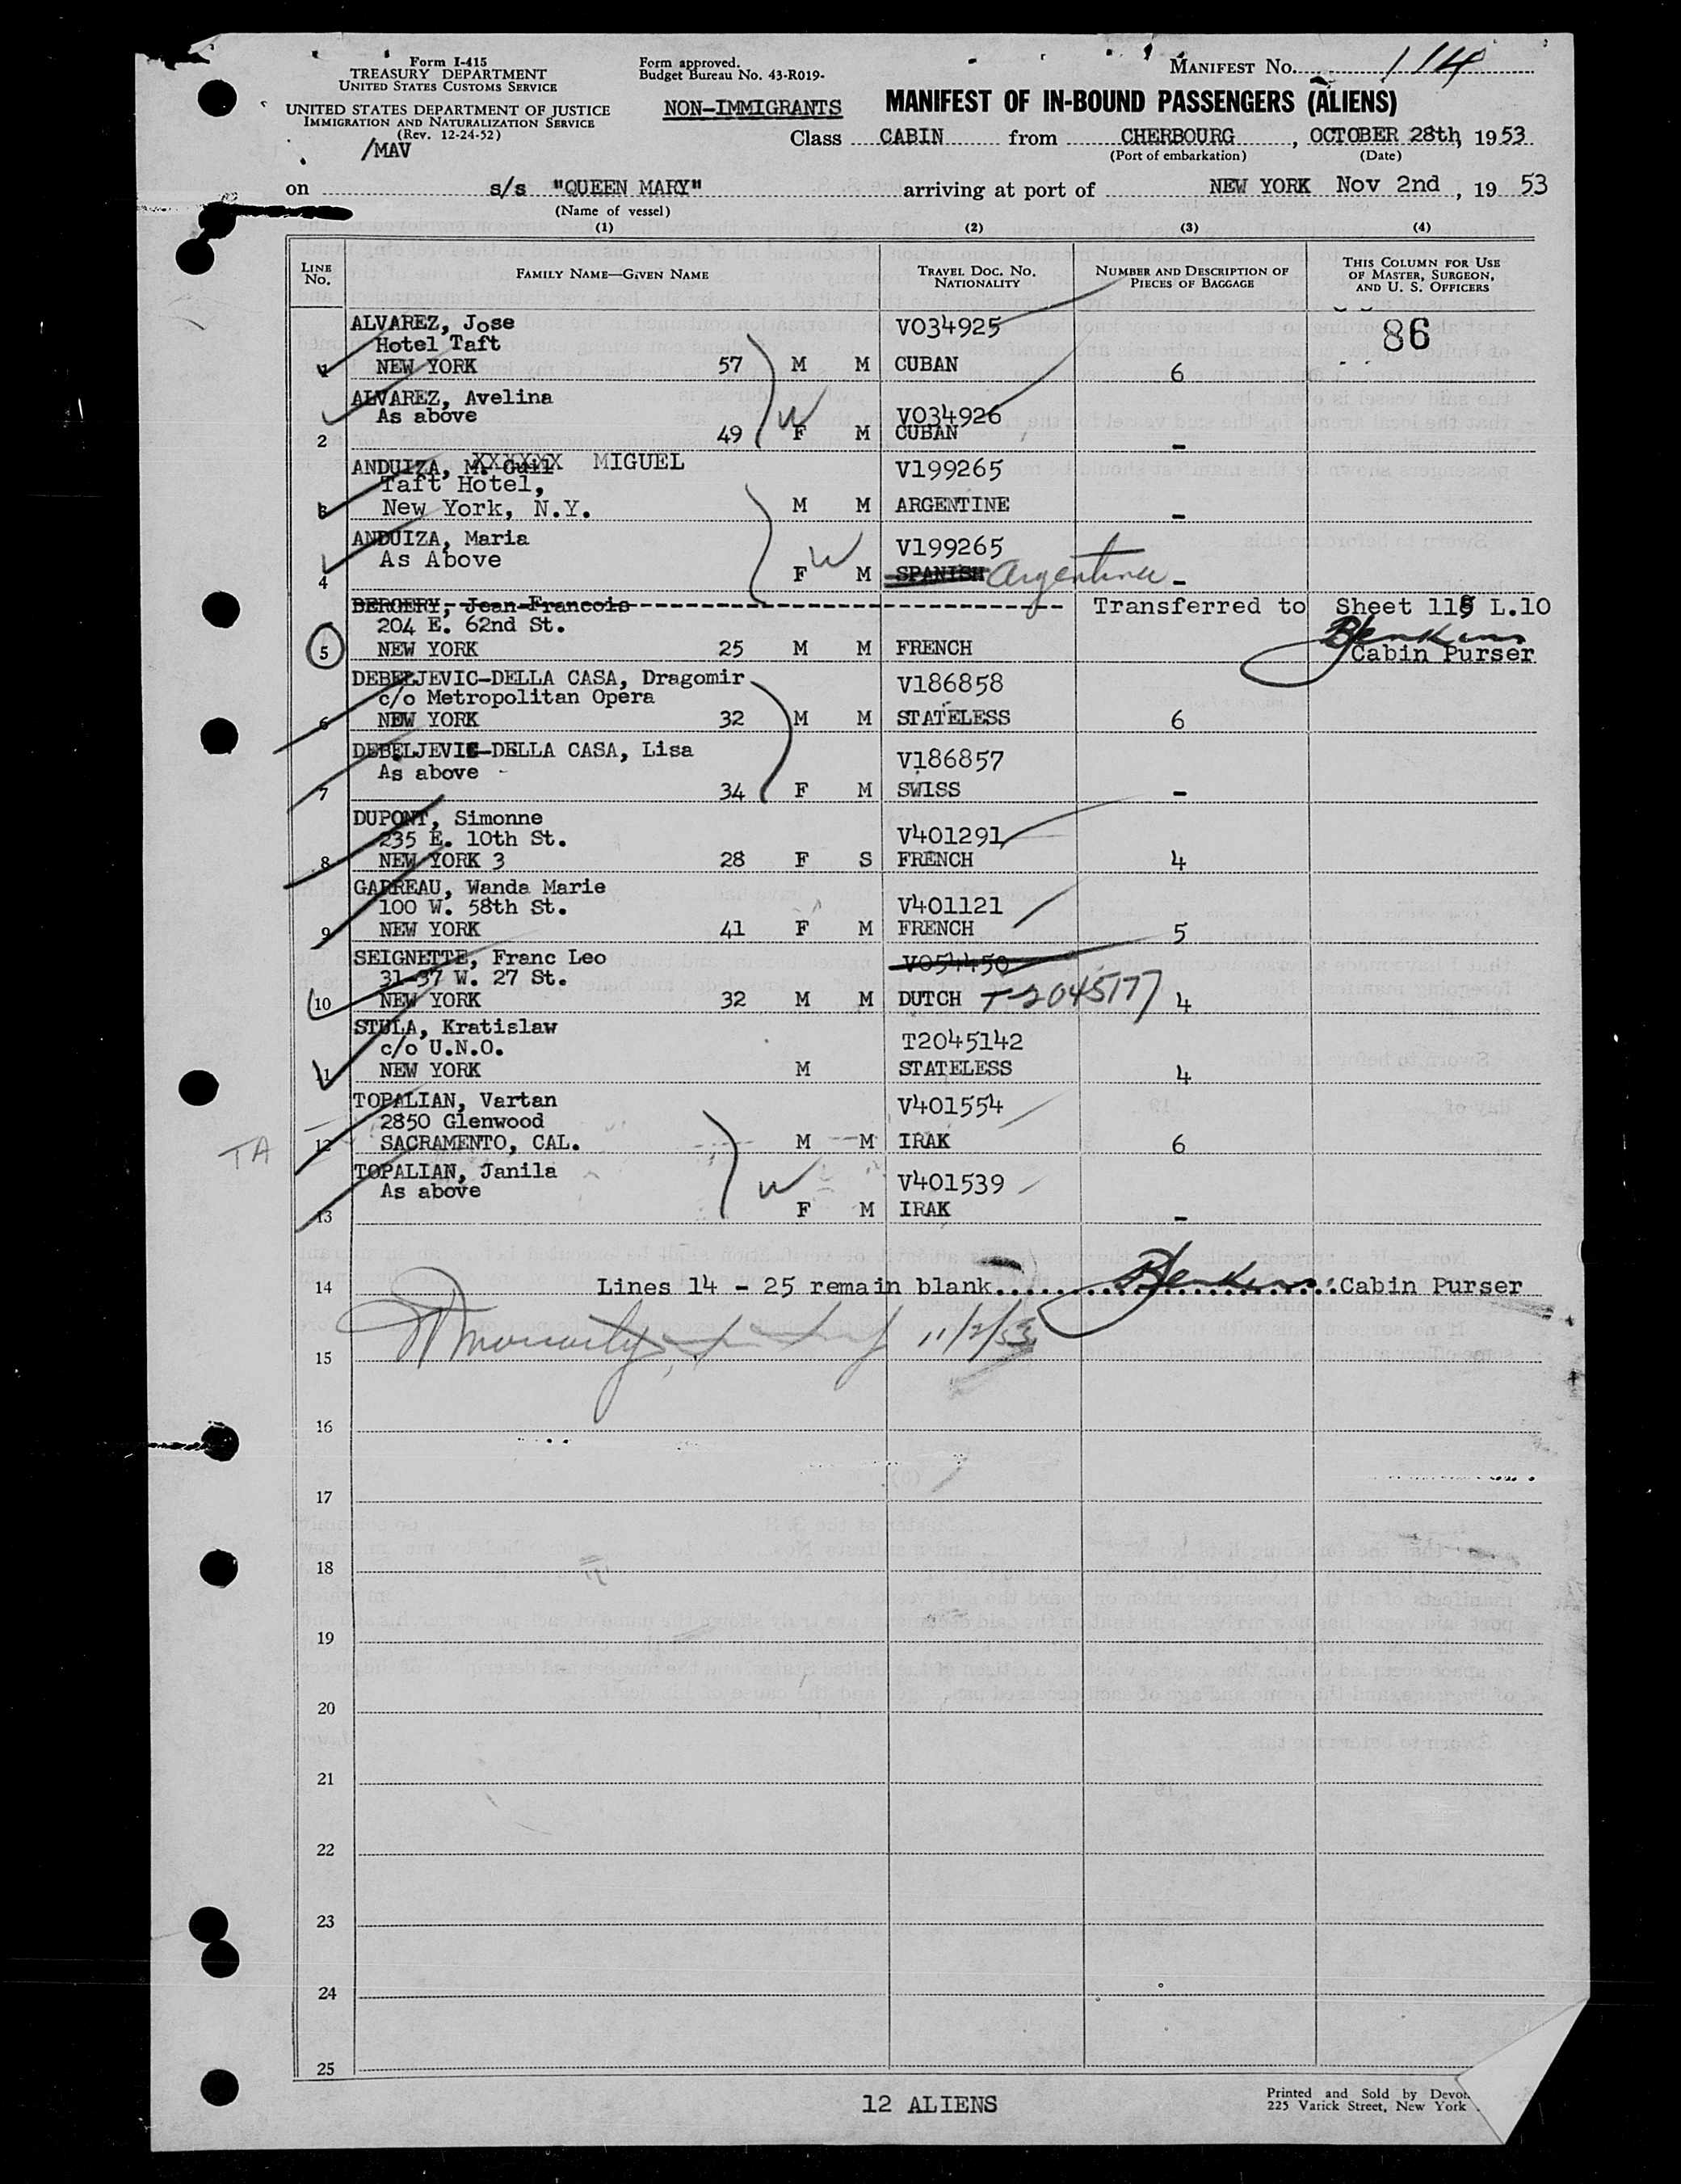 Form I-415
TREASURY DEPARTMENT
UNITED STATES CUSTOMS SERVICE
UNITED STATES DEPARTMENT OF JUSTICE
IMMIGRATION AND NATURALIZATION SERVICE
(Rev. 12-24-52)
/MAV
Form approved.
Budget Bureau No. 43-R019-
NON-IMMIGRANTS
MANIFEST NO. 114
MANIFEST OF IN-BOUND PASSENGERS (ALIENS)
Class CABIN from CHERBOURG, OCTOBER 28th, 1953
(Port of embarkation) (Date)
on s/s "QUEEN MARY" arriving at port of NEW YORK Nov 2nd, 19 53
(Name of vessel)
(1) (2) (3) (4)
LINE NO. FAMILY NAME—GIVEN NAME TRAVEL DOC. NO. NATIONALITY NUMBER AND DESCRIPTION OF PIECES OF BAGGAGE THIS COLUMN FOR USE OF MASTER, SURGEON, AND U. S. OFFICERS
ALVAREZ, Jose V034925 86
Hotel Taft
1 NEW YORK 57 M M CUBAN 6
ALVAREZ, Avelina
As above V034926
2 49 W F M CUBAN -
ANDUIZA, M. Guil XXXXXX MIGUEL V199265
Taft Hotel,
3 New York, N.Y. M M ARGENTINE -
ANDUIZA, Maria V199265
As Above
4 F W M SPANISH Argentina -
BERGERY, Jean-Francois Transferred to Sheet 115 L.10
204 E. 62nd St. BJenkins
5 NEW YORK 25 M M FRENCH Cabin Purser
DEBELJEVIC-DELLA CASA, Dragomir V186858
c/o Metropolitan Opera
6 NEW YORK 32 M M STATELESS 6
DEBELJEVIC-DELLA CASA, Lisa V186857
As above -
7 34 F M SWISS -
DUPONT, Simonne
235 E. 10th St. V401291
8 NEW YORK 3 28 F S FRENCH 4
GARREAU, Wanda Marie
100 W. 58th St. V401121
9 NEW YORK 41 F M FRENCH 5
SEIGNETTE, Franc Leo V054450
31-37 W. 27 St.
10 NEW YORK 32 M M DUTCH T-2045177 4
STULA, Kratislaw
c/o U.N.O. T2045142
11 NEW YORK M STATELESS 4
TOPALIAN, Vartan V401554
2850 Glenwood
TA 12 SACRAMENTO, CAL. M M IRAK 6
TOPALIAN, Janila V401539
As above W
13 F M IRAK -
14 Lines 14 - 25 remain blank. BJenkins Cabin Purser
11/2/53
15
16
17
18
19
20
21
22
23
24
25
12 ALIENS
Printed and Sold by
225 Varick Street, New York